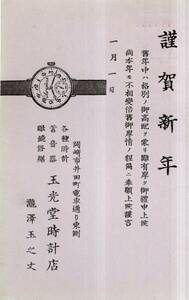 謹賀新年
舊年中ハ格別ノ御高配ヲ蒙リ難有厚ク御禮申上候
尚本年モ不相變倍舊御厚情ノ程偏ニ奉願上候謹言
一月一日
岡崎市井田町電車通リ東側
各種時計
蓄音器
眼鏡
玉光堂時計店
瀧澤玉之丈